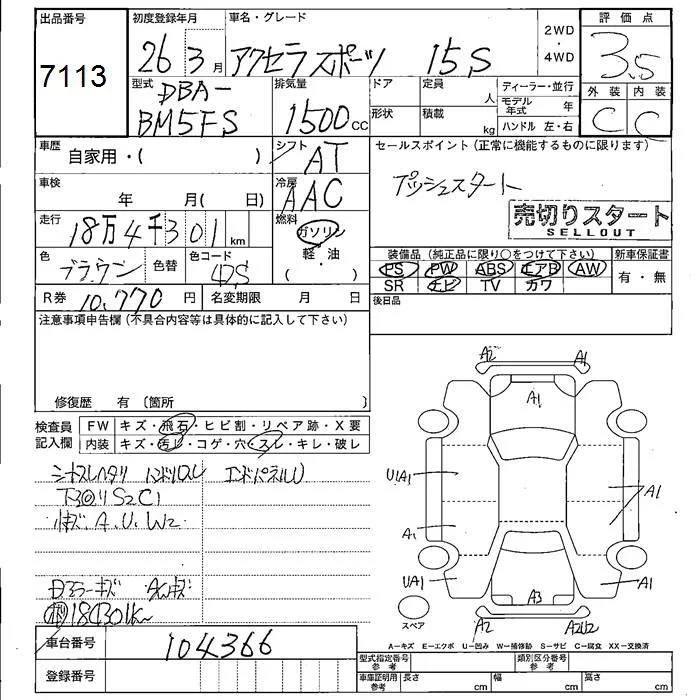 出品番号 初度登録年月 車名・グレード 2WD・4WD 評価点
7113 26 3月 アクセラスポーツ 15S 3.5
型式 DBA-BM5FS 排気量 1500cc ドア 定員 人 ディーラー・並行 外装 内装
形状 積載 kg モデル年式 年 C C
ハンドル 左・右
車歴 自家用・( ) シフト AT セールスポイント(正常に機能するものに限ります)
車検 年 月( 日) 冷房 AAC プッシュスタート
売切りスタート
SELLOUT
走行 18万4千301km 燃料 ガソリン
軽・油
( )
色 ブラウン 色替 色コード 42S
装備品(純正品に限り○をつけて下さい) 新車保証書
PS PW ABS エアB AW 有・無
SR ナビ TV カワ
R券 10,770円 名変期限 月 日 後日品
注意事項申告欄(不具合内容等は具体的に記入して下さい)
修復歴 有(箇所 )
検査員記入欄 FW キズ・飛石・ヒビ割・リペア跡・X要
内装 キズ・汚れ・コゲ・穴・スレ・キレ・破レ
シートスレヘタリ ハンドルスレ エンドパネルU
S2C1
A.U.W2
Dミラーキズ
184301km
車台番号 104366
登録番号
A2 A1
A1
U1A1 A1
A1
UA1 A3 A1
スペア A2 A2U2
A-キズ E-エクボ U-凹み W-補修跡 S-サビ C-腐食 XX-交換済
型式指定番号 参考 類別区分番号 参考
車庫証明用 参考 長さ cm 幅 cm 高さ cm